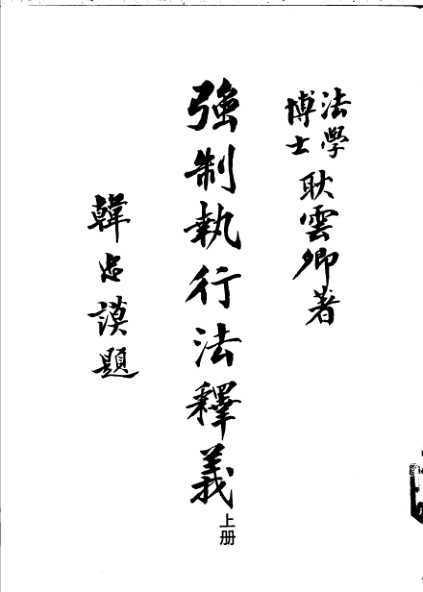 法學
博士
耿雲卿著
強制執行法釋義
上册
韓忠謨題